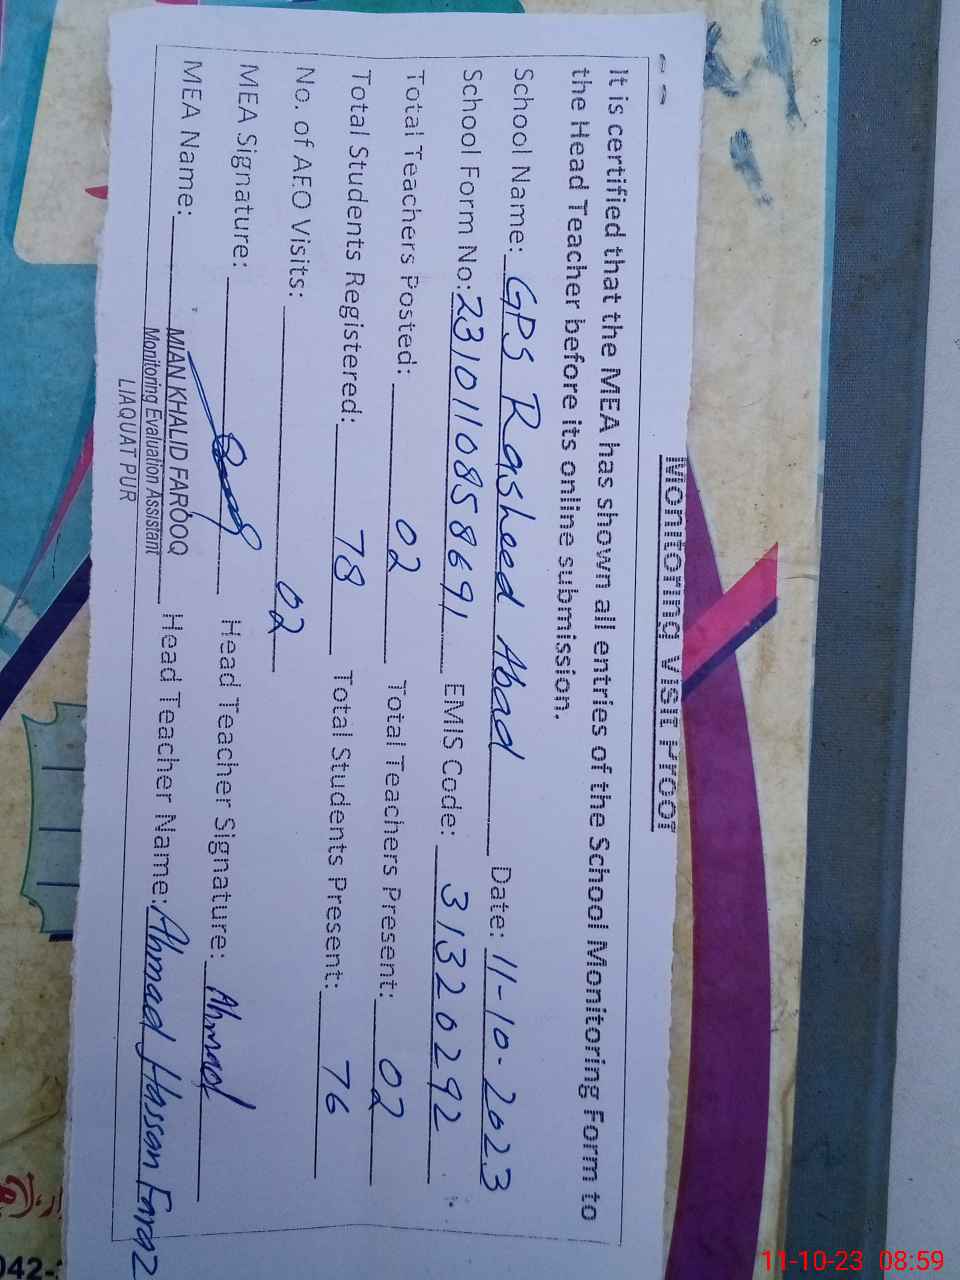 Monitoring Visit Proof
It is certified that the MEA has shown all entries of the School Monitoring Form to
the Head Teacher before its online submission.
School Name: GPS Rasheed Abad Date: 11-10-2023
School Form No: 2310110858691 EMIS Code: 31320292
Total Teachers Posted: 02 Total Teachers Present: 02
Total Students Registered: 78 Total Students Present: 76
No. of AEO Visits: 02
MEA Signature: Head Teacher Signature: Ahmad
MEA Name: MIAN KHALID FAROOQ Head Teacher Name: Ahmad Hassan Faraz
Monitoring Evaluation Assistant
LIAQUAT PUR
042-
11-10-23 08:59